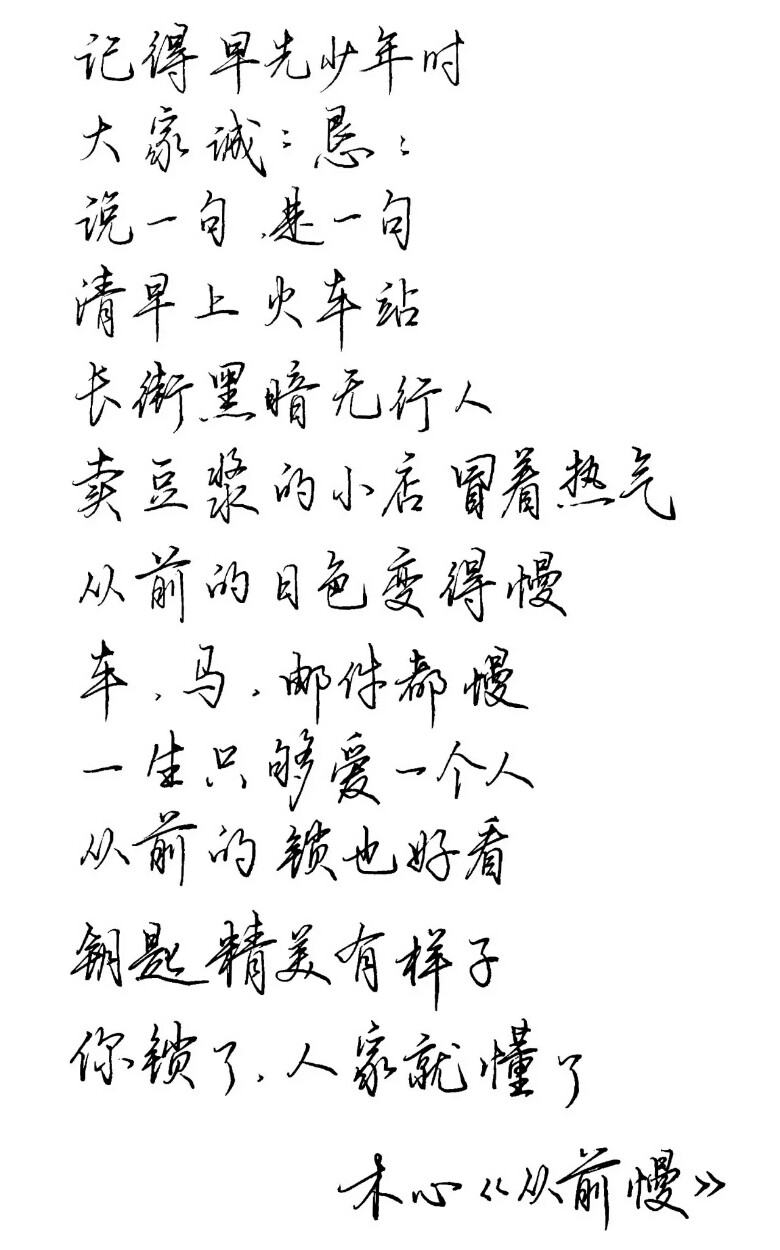 记得早先少年时
大家诚:恳:
说一句,是一句
清早上火车站
长街黑暗无行人
卖豆浆的小店冒着热气
从前的日色变得慢
车,马,邮件都慢
一生只够爱一个人
从前的锁也好看
钥匙精美有样子
你锁了,人家就懂了
木心《从前慢》